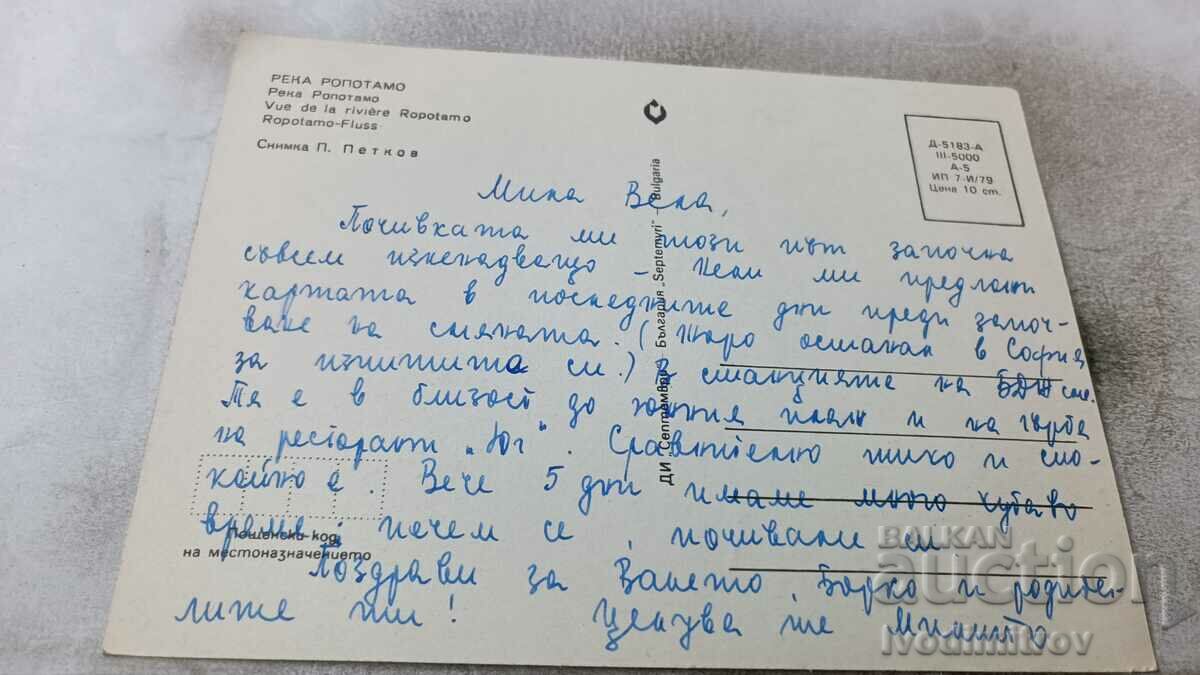 РЕКА РОПОТАМО
Река Ропотамо
Vue de la rivière Ropotamo
Ropotamo-Fluss
Снимка П. Петков
Д-5183-А
III-5000
А-5
ИП 7-И/79
Цена 10 ст.
ДИ „Септември" България „Septemvri" — Bulgaria
Мила Века,
Почивката ми този път започна
съвсем изненадващо – Нели ми предложи
картата в последните дни преди започ-
ване на смяната. (Гюро останал в София
за изпитите си.) В станцията на БДЖ сме.
Тя е в близост до южния плаж и на гърба
на ресторант „Юг". Сравнително тихо и спо-
койно е. Вече 5 дни имаме много хубаво
време, печем се, почивали си
Поздрави за Ването, Борко и родите-
лите ти! Целува те Милито
Пощенски код
на местоназначението
BALKAN
auction
Ivodimitrov